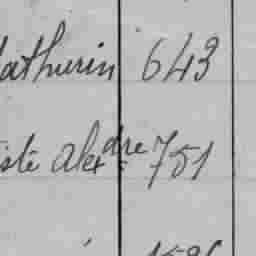 athurin 643
iste Alexdre 751